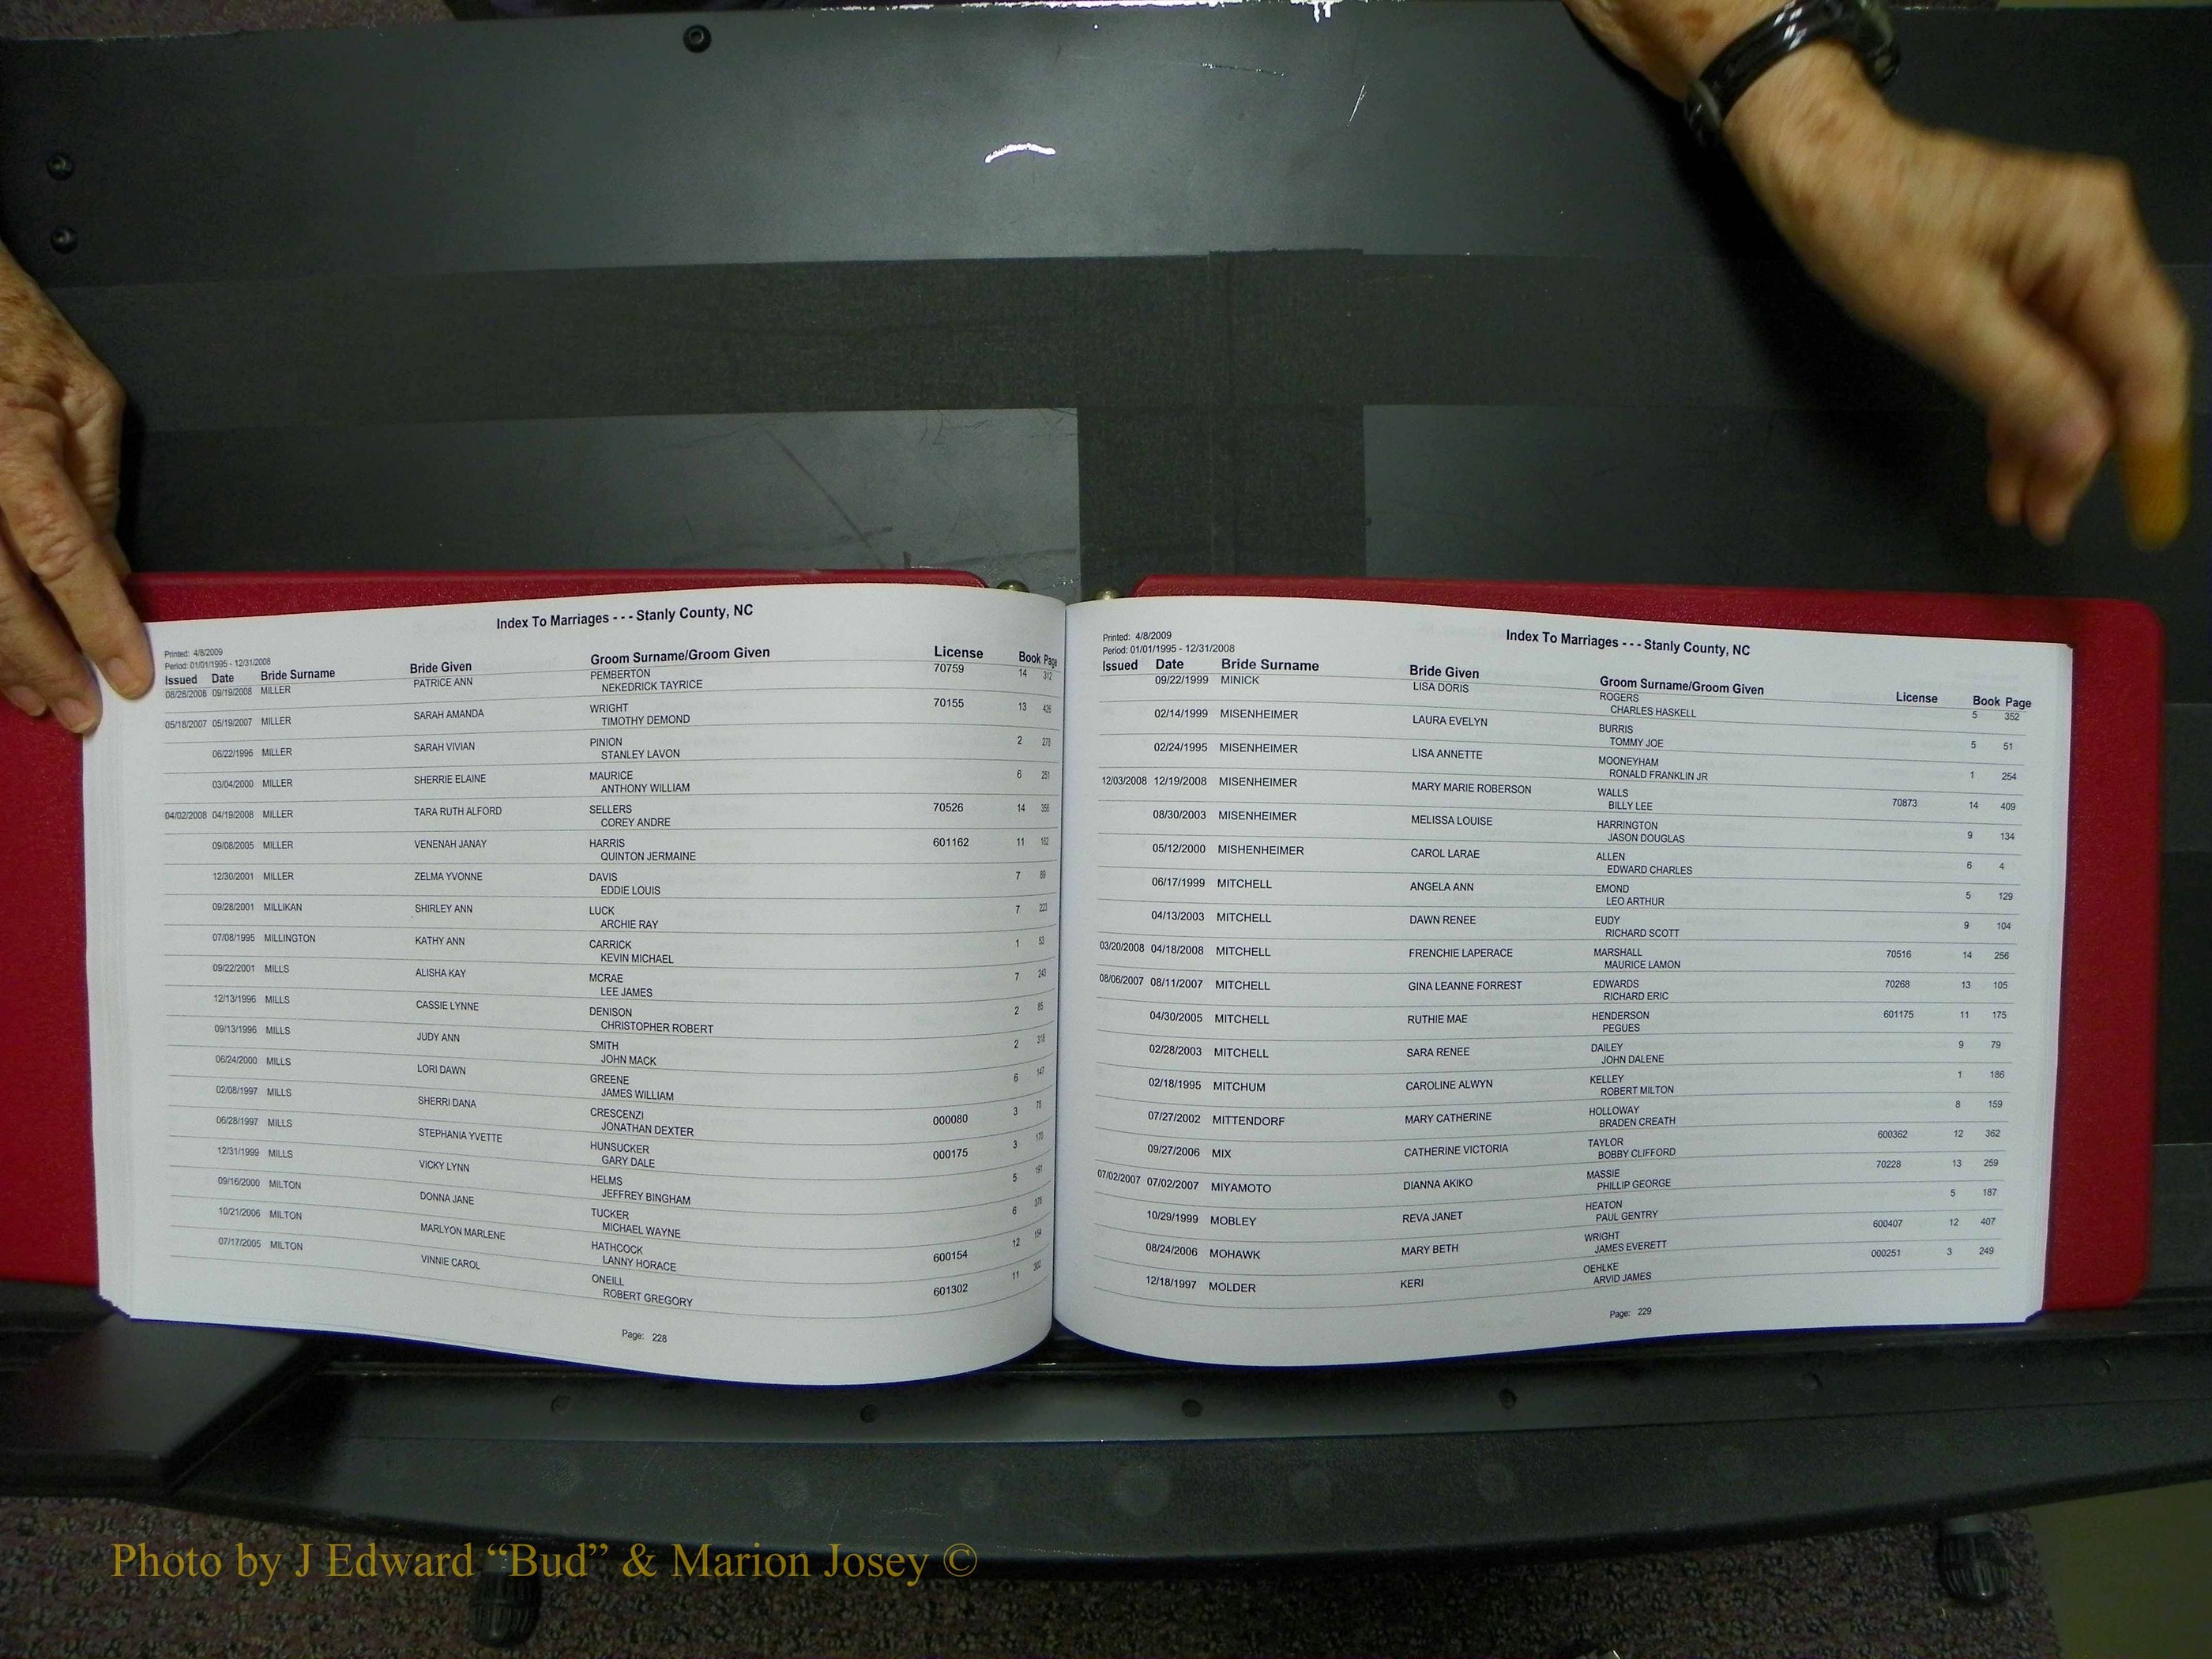 Index To Marriages - - - Stanly County, NC
Printed: 4/8/2009
Period: 01/01/1995 - 12/31/2008
Issued Date Bride Surname Bride Given Groom Surname/Groom Given License Book Page
08/28/2008 09/19/2008 MILLER PATRICE ANN PEMBERTON 70759 14 312
NEKEDRICK TAYRICE
05/18/2007 05/19/2007 MILLER SARAH AMANDA WRIGHT 70155 13 426
TIMOTHY DEMOND
06/22/1996 MILLER SARAH VIVIAN PINION 2
STANLEY LAVON
03/04/2000 MILLER SHERRIE ELAINE MAURICE 6 251
ANTHONY WILLIAM
04/02/2008 04/19/2008 MILLER TARA RUTH ALFORD SELLERS 70526 14 356
COREY ANDRE
09/08/2005 MILLER VENENAH JANAY HARRIS 601162 11 162
QUINTON JERMAINE
12/30/2001 MILLER ZELMA YVONNE DAVIS 7 89
EDDIE LOUIS
09/28/2001 MILLIKAN SHIRLEY ANN LUCK 7 223
ARCHIE RAY
07/08/1995 MILLINGTON KATHY ANN CARRICK 1 53
KEVIN MICHAEL
09/22/2001 MILLS ALISHA KAY MCRAE 7 243
LEE JAMES
12/13/1996 MILLS CASSIE LYNNE DENISON 2 85
CHRISTOPHER ROBERT
09/13/1996 MILLS JUDY ANN SMITH 2 318
JOHN MACK
06/24/2000 MILLS LORI DAWN GREENE 6 147
JAMES WILLIAM
02/08/1997 MILLS SHERRI DANA CRESCENZI 000080 3 78
JONATHAN DEXTER
06/28/1997 MILLS STEPHANIA YVETTE HUNSUCKER 000175 3 170
GARY DALE
12/31/1999 MILLS VICKY LYNN HELMS 5 191
JEFFREY BINGHAM
09/16/2000 MILTON DONNA JANE TUCKER 6 378
MICHAEL WAYNE
10/21/2006 MILTON MARLYON MARLENE HATHCOCK 600154 12 154
LANNY HORACE
07/17/2005 MILTON VINNIE CAROL ONEILL 601302 11 302
ROBERT GREGORY
Page: 228
Index To Marriages - - - Stanly County, NC
Printed: 4/8/2009
Period: 01/01/1995 - 12/31/2008
Issued Date Bride Surname Bride Given Groom Surname/Groom Given License Book Page
09/22/1999 MINICK LISA DORIS ROGERS 5 352
CHARLES HASKELL
02/14/1999 MISENHEIMER LAURA EVELYN BURRIS 5 51
TOMMY JOE
02/24/1995 MISENHEIMER LISA ANNETTE MOONEYHAM 1 254
RONALD FRANKLIN JR
12/03/2008 12/19/2008 MISENHEIMER MARY MARIE ROBERSON WALLS 70873 14 409
BILLY LEE
08/30/2003 MISENHEIMER MELISSA LOUISE HARRINGTON 9 134
JASON DOUGLAS
05/12/2000 MISHENHEIMER CAROL LARAE ALLEN 6 4
EDWARD CHARLES
06/17/1999 MITCHELL ANGELA ANN EMOND 5 129
LEO ARTHUR
04/13/2003 MITCHELL DAWN RENEE EUDY 9 104
RICHARD SCOTT
03/20/2008 04/18/2008 MITCHELL FRENCHIE LAPERACE MARSHALL 70516 14 256
MAURICE LAMON
08/06/2007 08/11/2007 MITCHELL GINA LEANNE FORREST EDWARDS 70268 13 105
RICHARD ERIC
04/30/2005 MITCHELL RUTHIE MAE HENDERSON 601175 11 175
PEGUES
02/28/2003 MITCHELL SARA RENEE DAILEY 9 79
JOHN DALENE
02/18/1995 MITCHUM CAROLINE ALWYN KELLEY 1 186
ROBERT MILTON
07/27/2002 MITTENDORF MARY CATHERINE HOLLOWAY 8 159
BRADEN CREATH
09/27/2006 MIX CATHERINE VICTORIA TAYLOR 600362 12 362
BOBBY CLIFFORD
07/02/2007 07/02/2007 MIYAMOTO DIANNA AKIKO MASSIE 70228 13 259
PHILLIP GEORGE
10/29/1999 MOBLEY REVA JANET HEATON 5 187
PAUL GENTRY
08/24/2006 MOHAWK MARY BETH WRIGHT 600407 12 407
JAMES EVERETT
12/18/1997 MOLDER KERI OEHLKE 000251 3 249
ARVID JAMES
Page: 229
Photo by J Edward “Bud” & Marion Josey ©